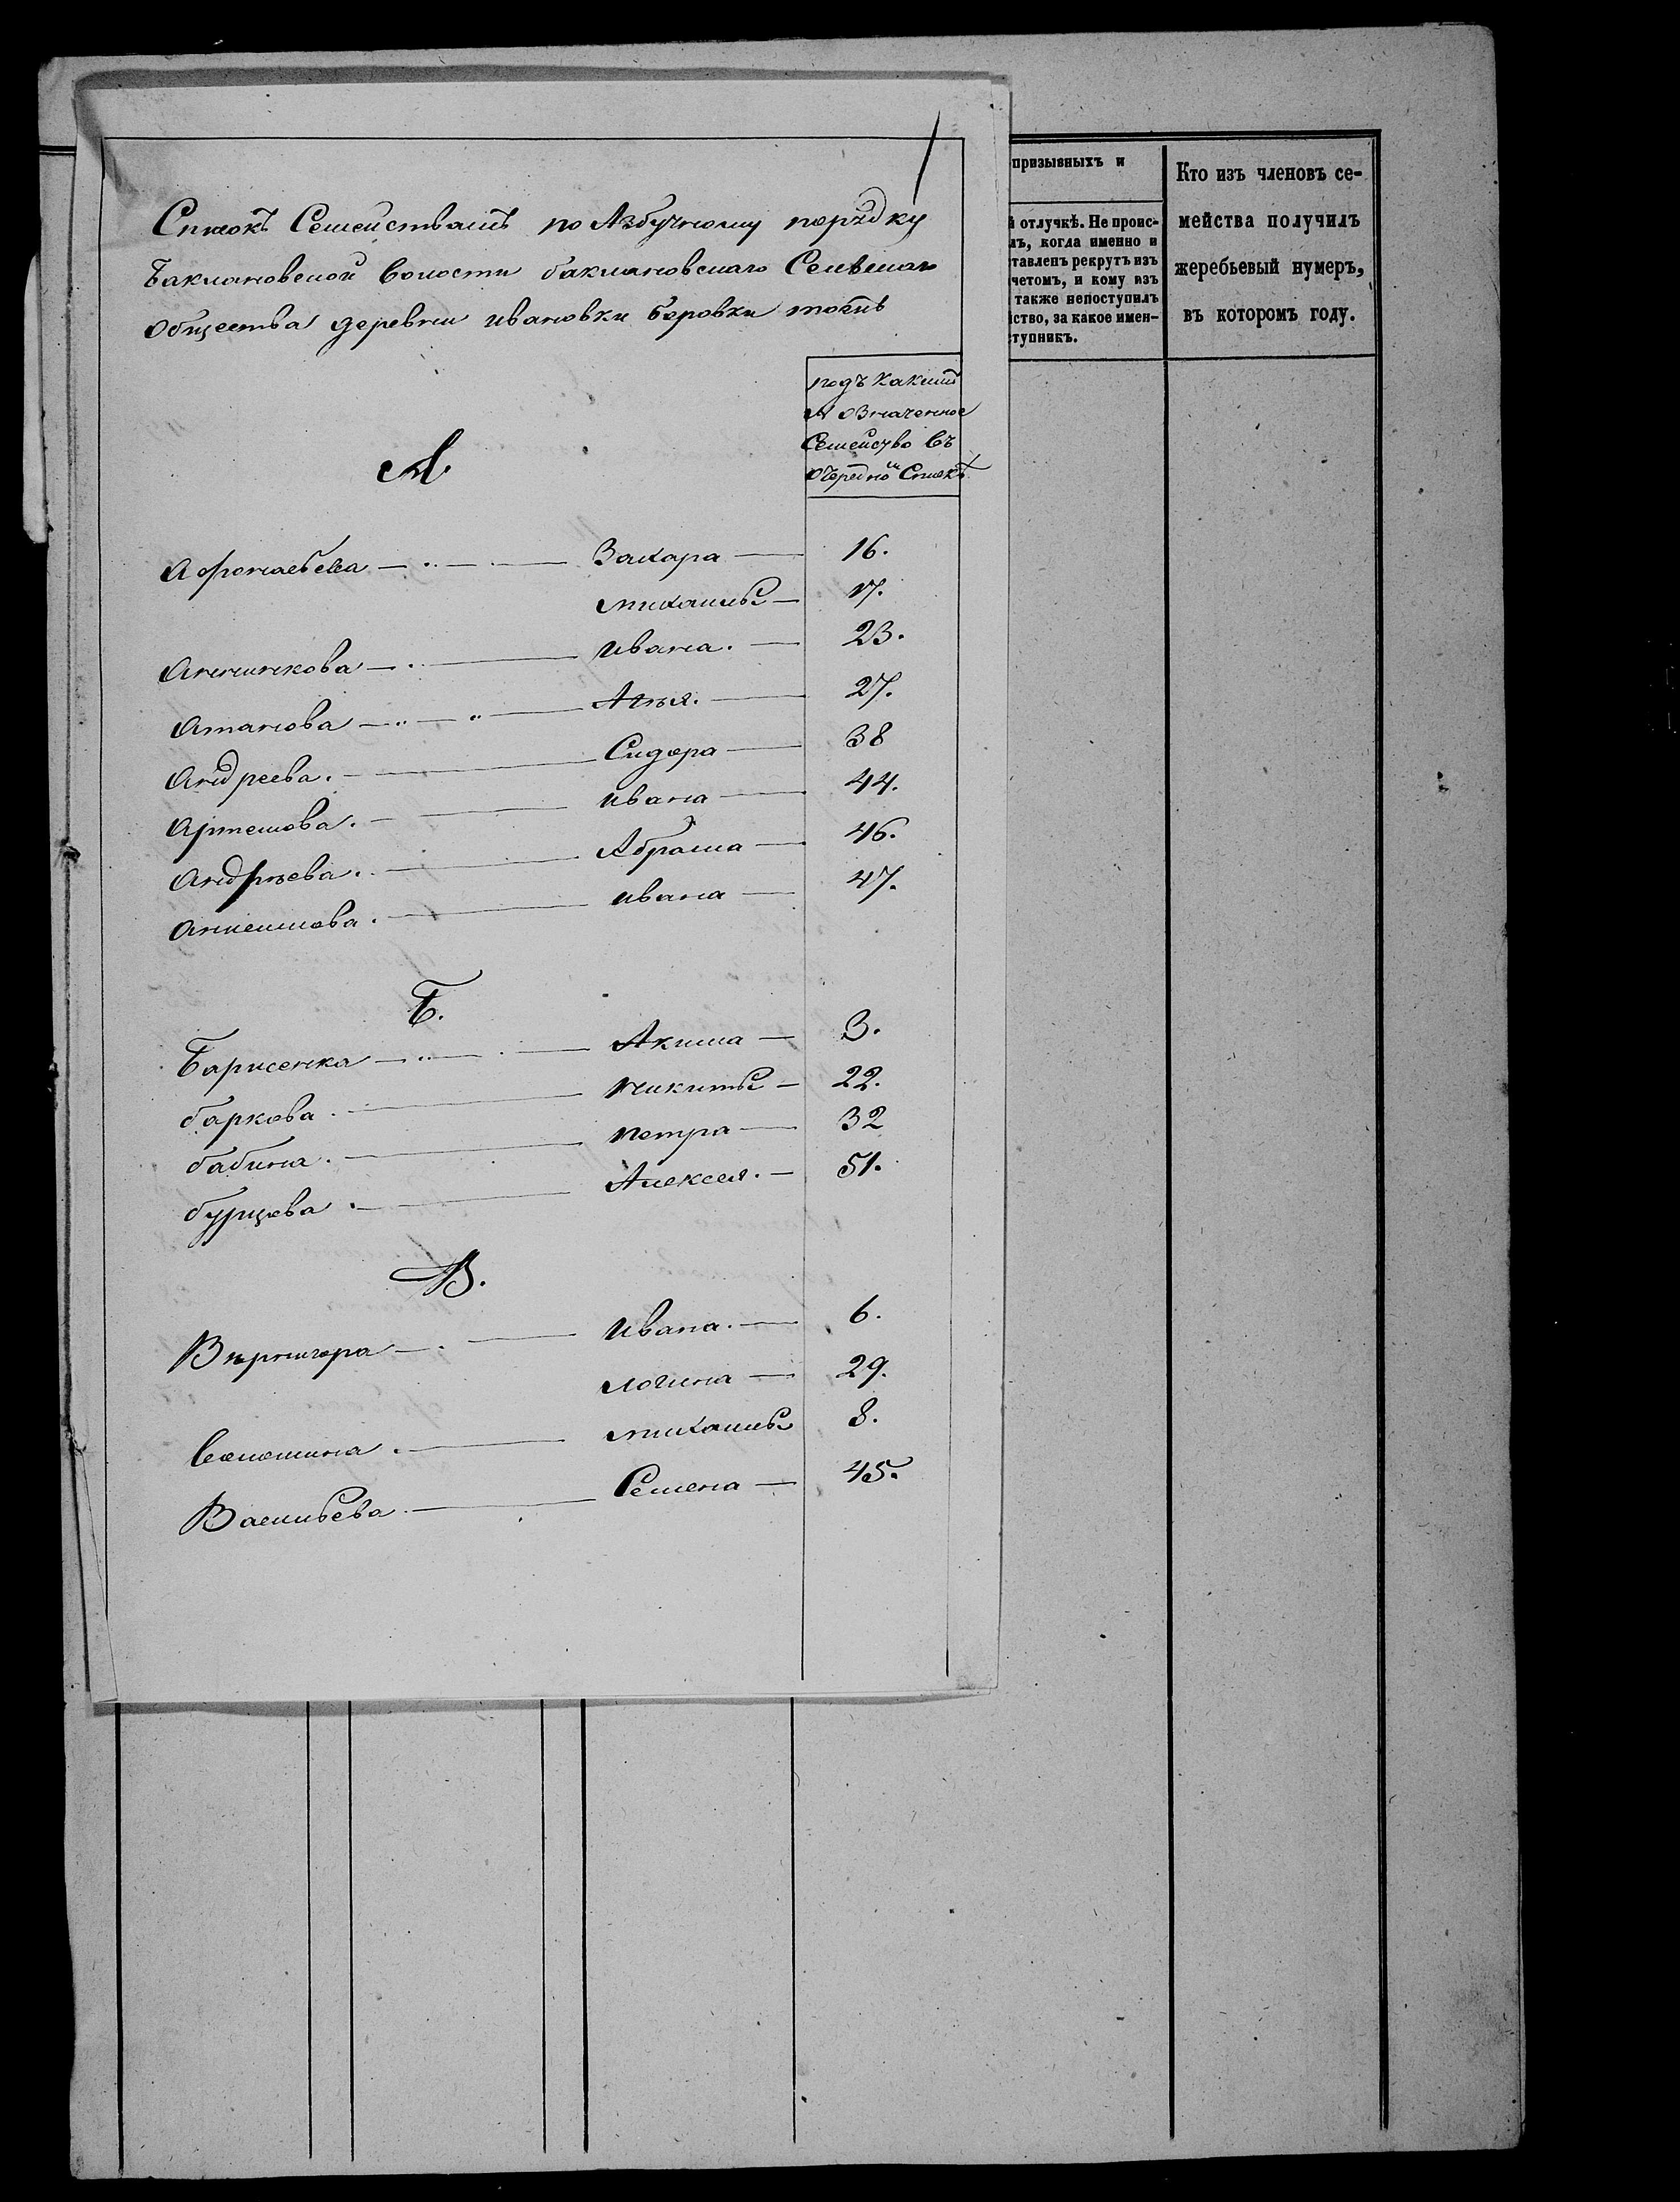 Списокъ Семействамъ по Азбучному порядку
Баклановской Волости баклановскаго Сельскаго
Общества деревни ивановки боровки тожъ
подъ какимъ
№ означенное
Семейство въ
очередной Спискѣ
А
Афонасьева — Захара — 16.
михаилы — 17.
Анничкова — ивана. — 23.
Атанова — Агѣя. — 27.
Андреева. — Сидора — 38
Артемова. — ивана — 44.
Андрѣева. — Абрама — 46.
Анисимова. — ивана — 47.
Б.
Барисенка — Акима — 3.
баркова. — никиты — 22.
бабина. — петра — 32
бурцова. — Алексея. — 51.
В.
Вѣрнигора — ивана. — 6.
логина — 29.
волошина. — михаилы 8.
Васильева — Семена — 45.
призывныхъ и
й отлучкѣ. Не проис-
лъ, когда именно и
тавленъ рекрутъ изъ
четомъ, и кому изъ
также непоступилъ
йство, за какое имен-
ступникъ.
Кто изъ членовъ се-
мейства получилъ
жеребьевый нумеръ,
въ которомъ году.